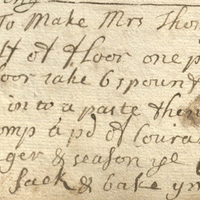 To Make Mrs Shor
lf of floor one p
oor take 6 spound
in to a paste then
omp a pd of Coura
ger & season ye
Sack & bake ym